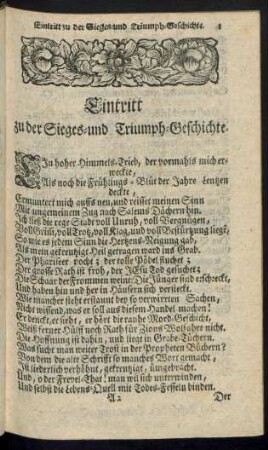 Eintritt zu der Sieges-und Triumph-Geschichte. 1
Eintritt
zu der Sieges-und Triumph-Geschichte.
EIn hoher Himmels-Trieb, der vormahls mich er-
weckte,
Als noch die Frühlings-Blüt der Jahre Lentzen
deckte,
Ermuntert mich auffs neu, und reisset meinen Sinn
Mit ungemeinem Zug nach Salems Dächern hin.
Ich seh die rege Stadt voll Unruh, voll Vergnügen,
Voll Grim, voll Trotz, voll Klag, und voll Bestürtzung liegē,
So wie es jedem Sinn die Hertzens-Neigung gab,
Als mein gekreutzigt Heil getragen ward ins Grab.
Der Phariseer pocht; der tolle Pöbel fluchet;
Der grosse Rath ist froh, der JEsu Tod gesuchet;
Die Schaar der Frommen weint: Die Jünger sind erschreckt,
Und haben hin und her in Häusern sich versteckt.
Wie mancher steht erstaunt bey so verwirrten Sachen,
Nicht wissend, was er soll aus diesem Handel machen!
Er denckt, er sieht, er hört die rauhe Mord-Geschicht,
Weiß ferner Hülff noch Rath für Zions Wolfahrt nicht.
Die Hoffnung ist dahin, und liegt in Grabe-Tüchern.
Was sucht man weiter Trost in der Propheten Büchern?
Von dem die alte Schrifft so manches Wort gemacht,
Ist liederlich verhöhnt, gekreutzigt, umgebracht.
Und, o der Frevel-That! man wil sich unterwinden,
Und selbst die Lebens-Quell mit Todes-Fesseln binden.
A 2 Der